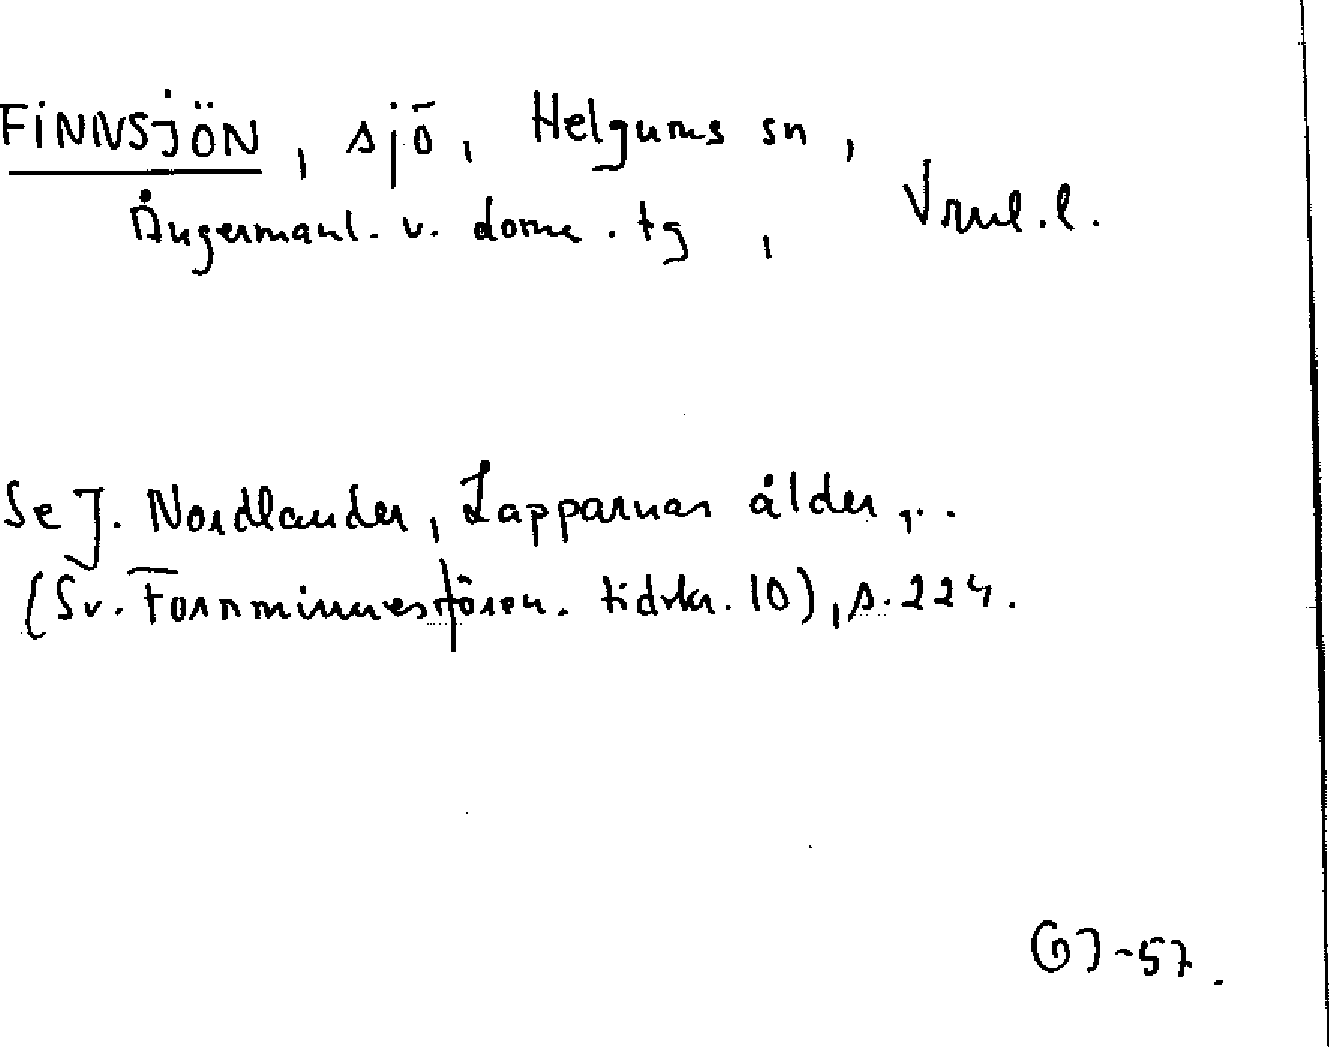 FINNSJÖN, sjö, Helgums sn,
Ångermanl. v. doms. tg, Vrnl. l.
Se J. Nordlander, Lapparnas ålder,..
(Sv. Fornminnesfören. tidskr. 10), s. 224.
GJ-57.